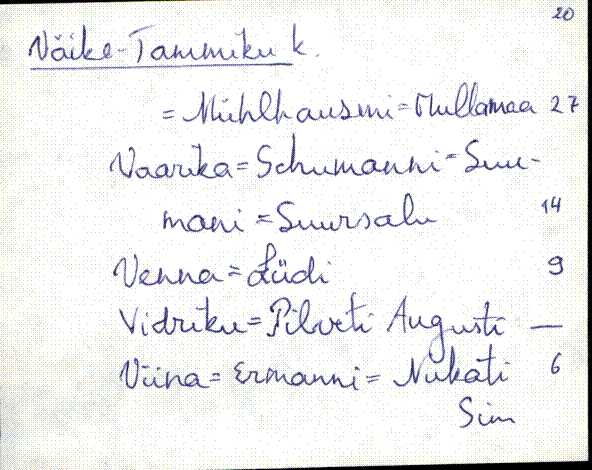 20
Väike-Tammiku k.
= Mühlhauseni = Mullamaa 27
Vaarika = Schumanni = Suu-
mani = Suursalu 14
Venna = Lüdi 9
Vidriku = Pilveti Augusti —
Viina = Ermanni = Nukati 6
Sim